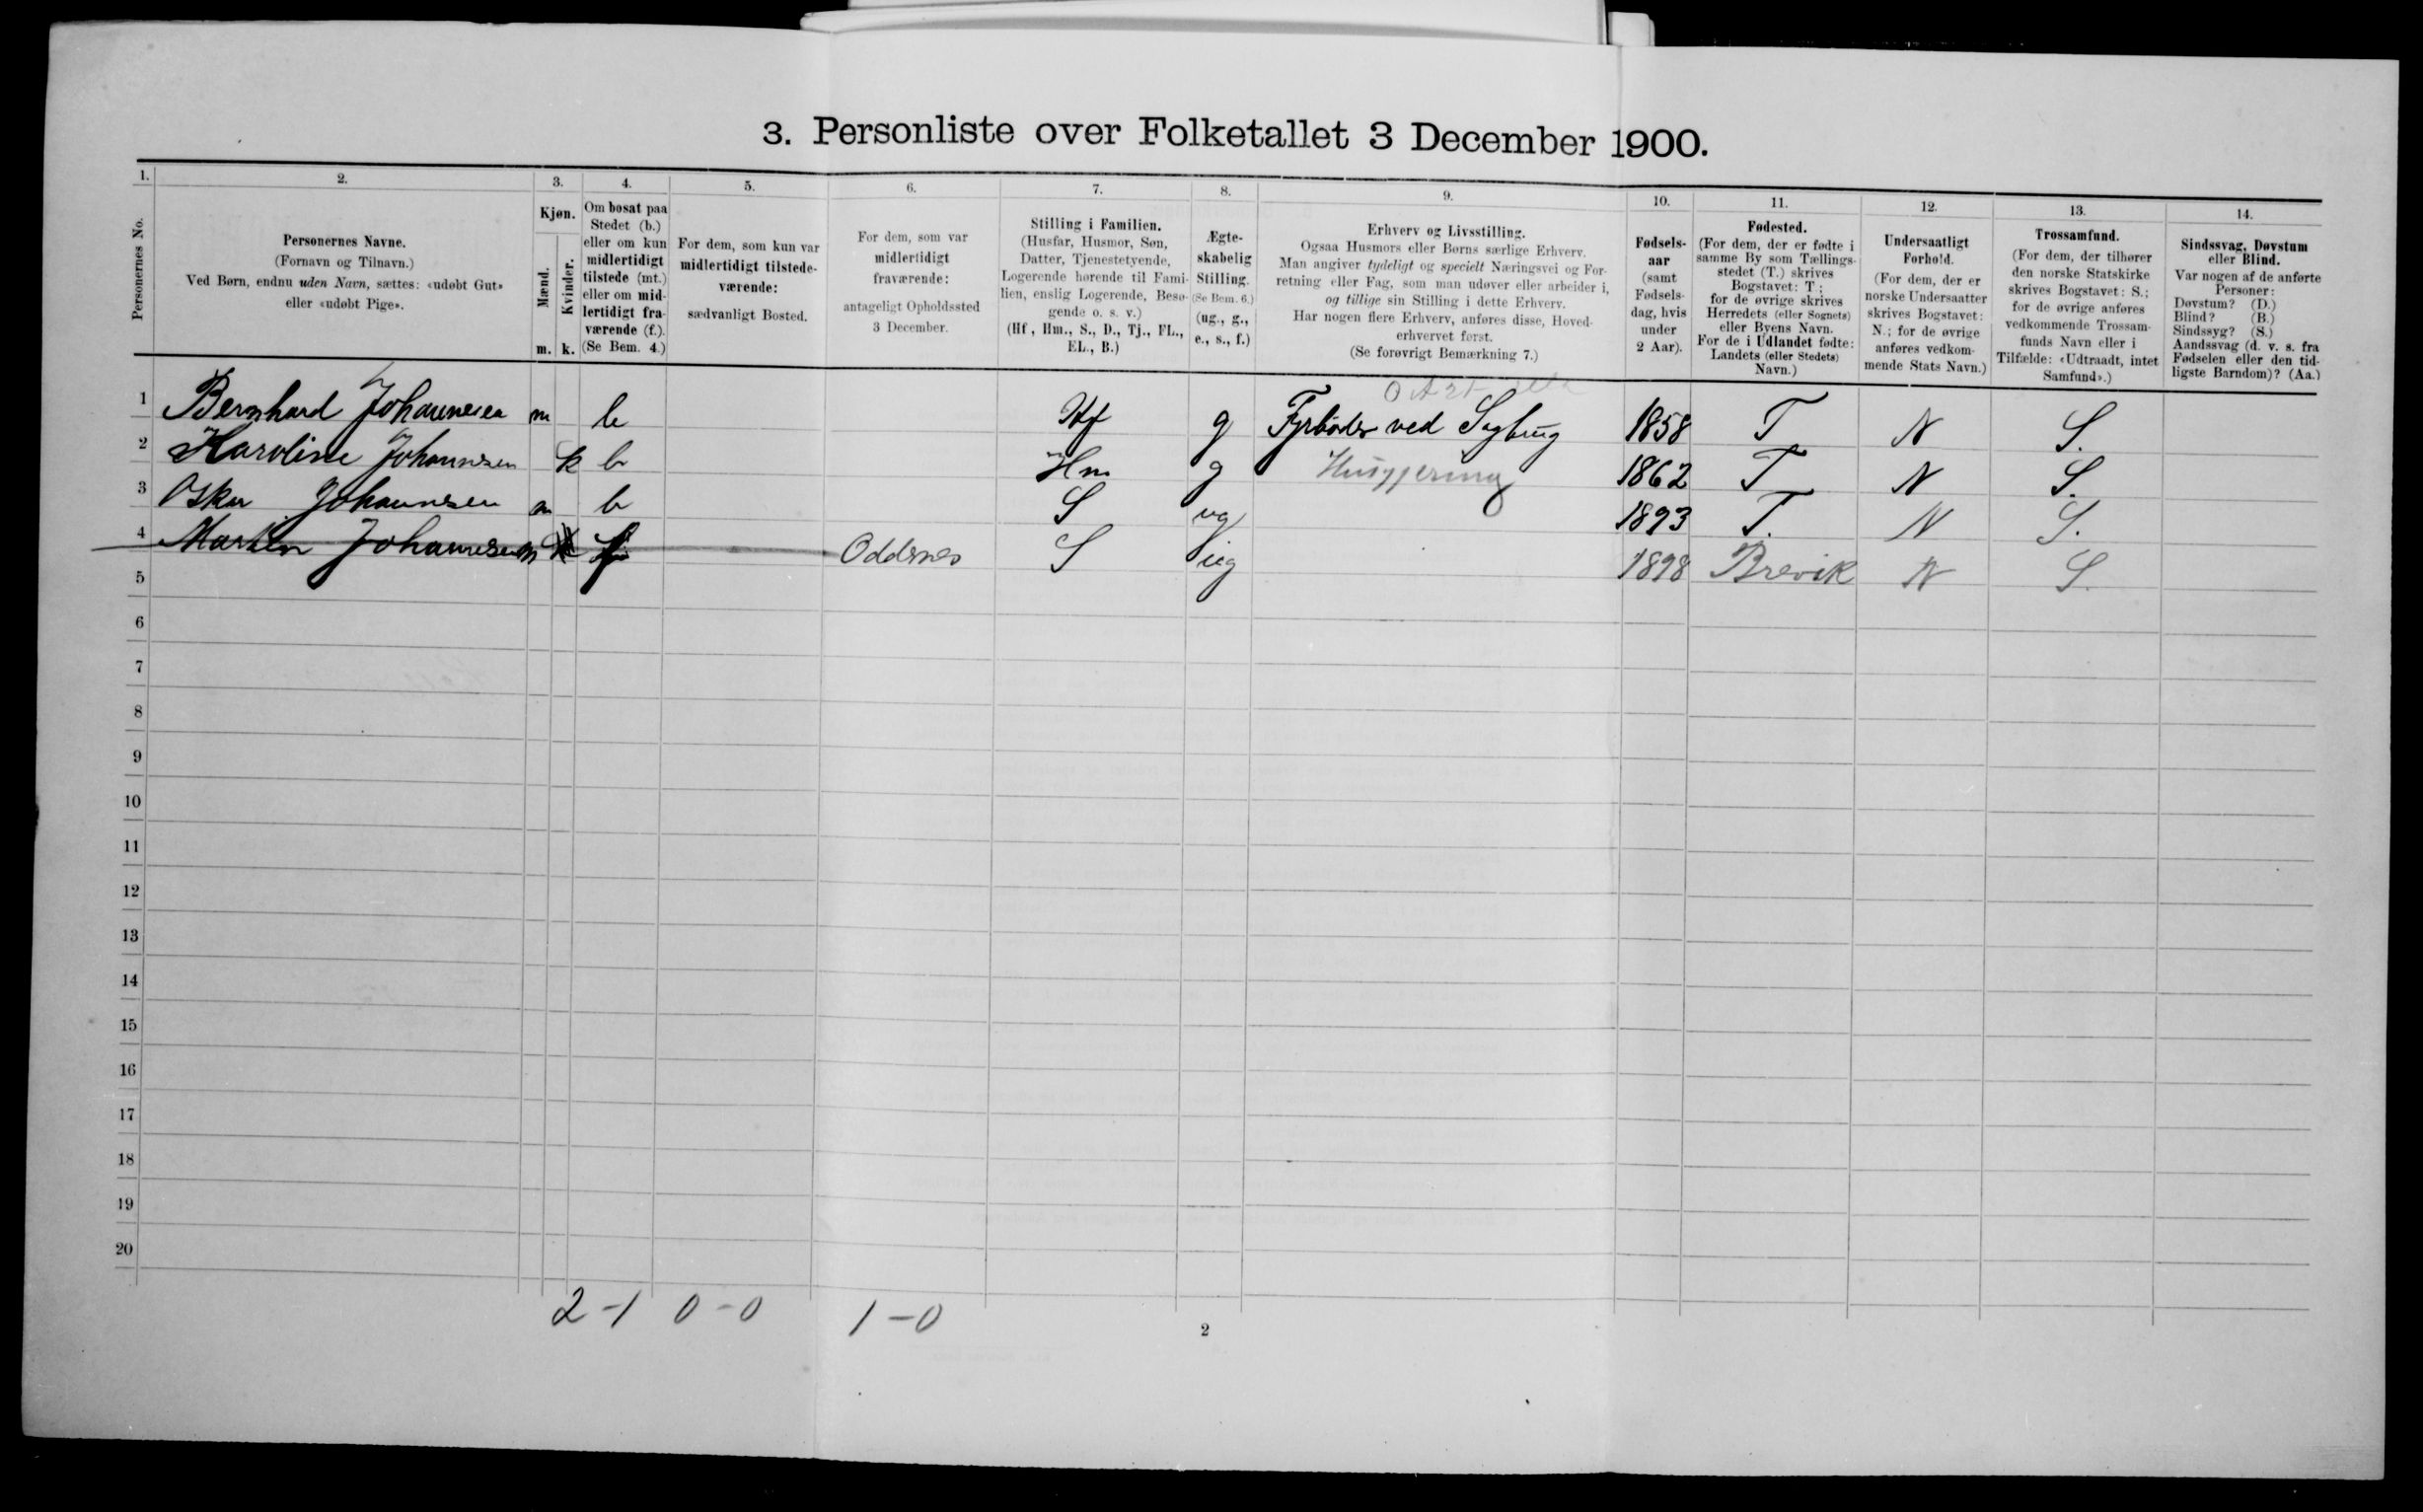 3. Personliste over Folketallet 3 December 1900.
1. 2. 3. 4. 5. 6. 7. 8. 9. 10. 11. 12. 13. 14.
Personernes No.
Personernes Navne.
(Fornavn og Tilnavn.)
Ved Børn, endnu uden Navn, sættes: «udøbt Gut»
eller «udøbt Pige».
Kjøn.
Mænd.
m.
Kvinder.
k.
Om bosat paa
Stedet (b.)
eller om kun
midlertidigt
tilstede (mt.)
eller om mid-
lertidigt fra-
værende (f.).
(Se Bem. 4.)
For dem, som kun var
midlertidigt tilstede-
værende:
sædvanligt Bosted.
For dem, som var
midlertidigt
fraværende:
antageligt Opholdssted
3 December.
Stilling i Familien.
(Husfar, Husmor, Søn,
Datter, Tjenestetyende,
Logerende hørende til Fami-
lien, enslig Logerende, Besø-
gende o. s. v.)
(Hf, Hm., S., D., Tj., FL.,
EL., B.)
Ægte-
skabelig
Stilling.
(Se Bem. 6.)
(ug., g.,
e., s., f.)
Erhverv og Livsstilling.
Ogsaa Husmors eller Børns særlige Erhverv.
Man angiver tydeligt og specielt Næringsvei og For-
retning eller Fag, som man udøver eller arbeider i,
og tillige sin Stilling i dette Erhverv.
Har nogen flere Erhverv, anføres disse, Hoved-
erhvervet først.
(Se forøvrigt Bemærkning 7.)
Fødsels-
aar
(samt
Fødsels-
dag, hvis
under
2 Aar).
Fødested.
(For dem, der er fødte i
samme By som Tællings-
stedet (T.) skrives
Bogstavet: T.;
for de øvrige skrives
Herredets (eller Sognets)
eller Byens Navn.
For de i Udlandet fødte:
Landets (eller Stedets)
Navn.)
Undersaatligt
Forhold.
(For dem, der er
norske Undersaatter
skrives Bogstavet:
N.; for de øvrige
anføres vedkom-
mende Stats Navn.)
Trossamfund.
(For dem, der tilhører
den norske Statskirke
skrives Bogstavet: S.;
for de øvrige anføres
vedkommende Trossam-
funds Navn eller i
Tilfælde: «Udtraadt, intet
Samfund».)
Sindssvag, Døvstum
eller Blind.
Var nogen af de anførte
Personer:
Døvstum? (D.)
Blind? (B.)
Sindssyg? (S.)
Aandssvag (d. v. s. fra
Fødselen eller den tid-
ligste Barndom)? (Aa.)
1 Bernhard Johannesen m b Hf g Fyrbøder ved Sagbrug 1858 T N S.
2 Karoline Johannsen k b Hm g Husgjerning 1862 T N S.
3 Oskar Johannsen m b S ug 1893 T. N S.
4 Martin Johannesen m f Oddenes S ug 1898 Brevik N S.
5
6
7
8
9
10
11
12
13
14
15
16
17
18
19
20
2-1 0-0 1-0
2